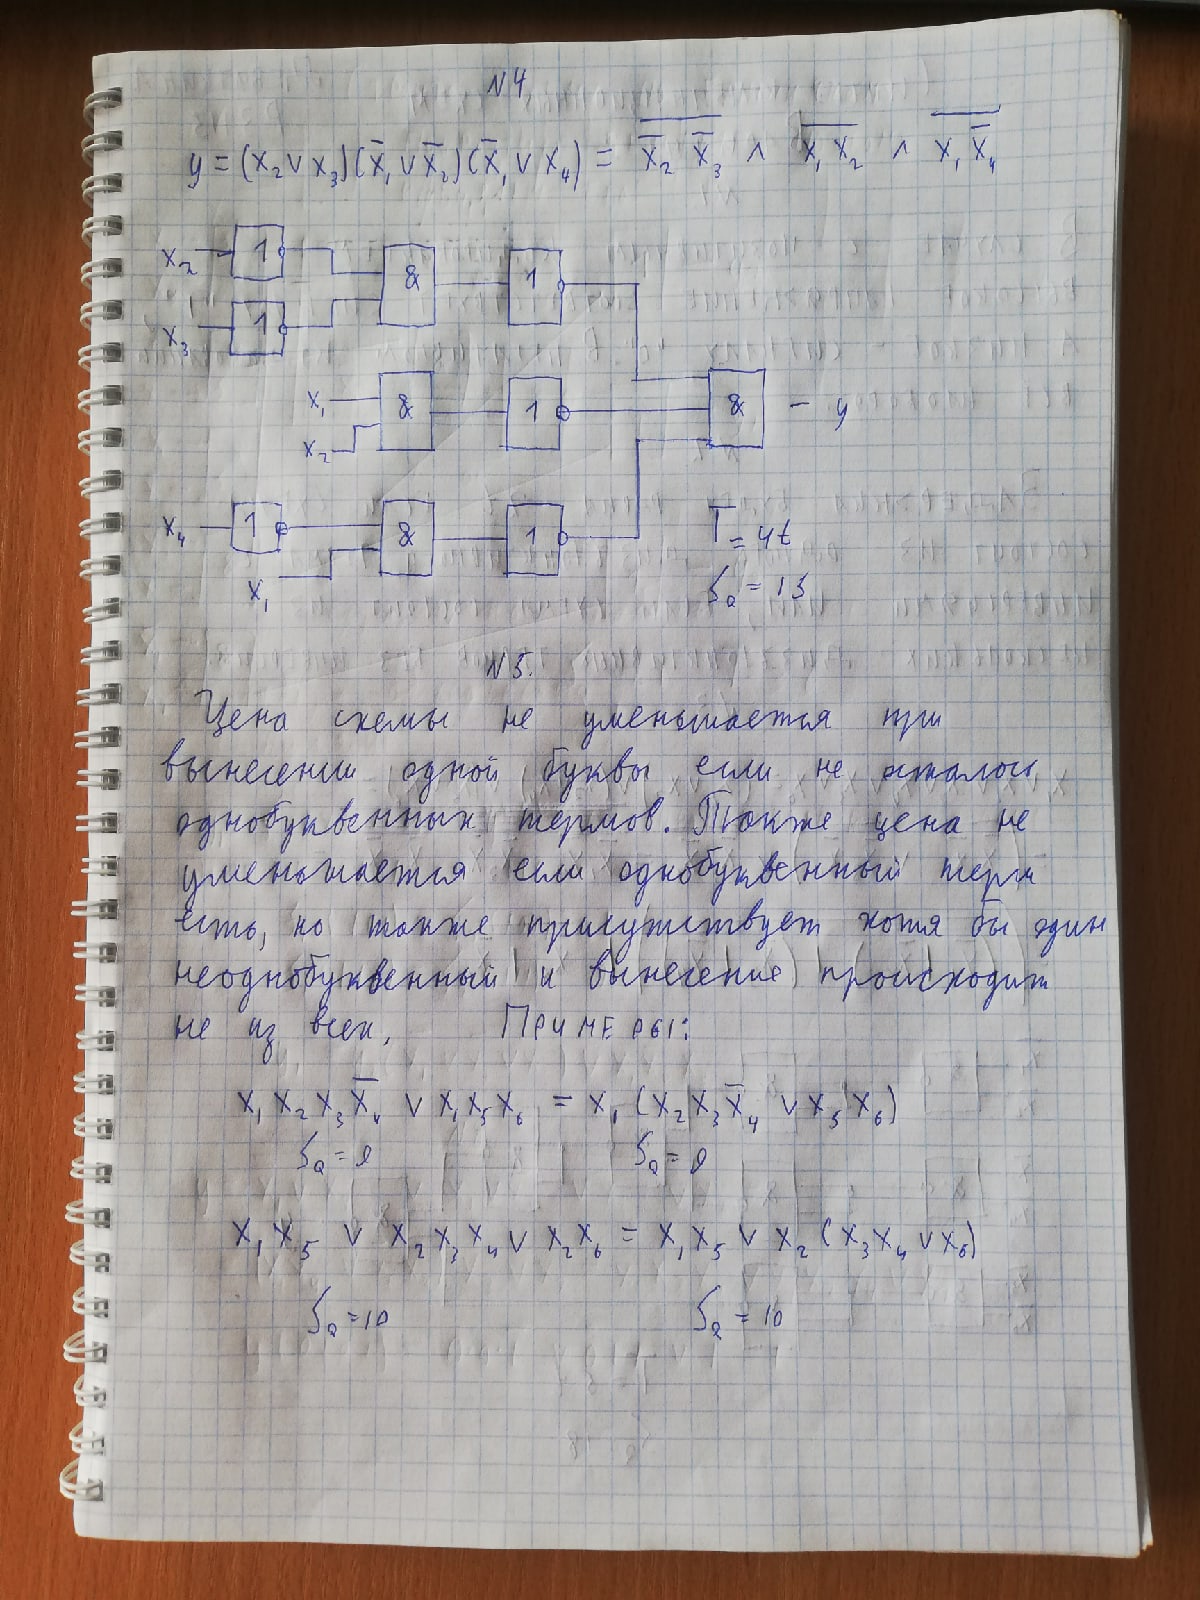 N4
y = (x₂ ∨ x₃)(x̄₁ ∨ x̄₂)(x̄₁ ∨ x₄) = \overline{x̄₂ x̄₃} ∧ \overline{x₁ x₂} ∧ \overline{x₁ x̄₄}
x₂ 1 & 1
x₃ 1
x₁ & 1 & – y
x₂
x₄ 1 & 1 T = 4t
x₁ S_Q = 15
N5.
Цена схемы не уменьшается при
вынесении одной буквы если не осталось
однобуквенных термов. Также цена не
уменьшается если однобуквенный терм
есть, но также присутствует хотя бы один
неоднобуквенный и вынесение происходит
не из всех. ПРИМЕРЫ:
x₁ x₂ x₃ x̄₄ ∨ x₁ x₅ x₆ = x₁ (x₂ x₃ x̄₄ ∨ x₅ x₆)
S_Q = 9 S_Q = 9
x₁ x₅ ∨ x₂ x₃ x₄ ∨ x₂ x₆ = x₁ x₅ ∨ x₂ (x₃ x₄ ∨ x₆)
S_Q = 10 S_Q = 10